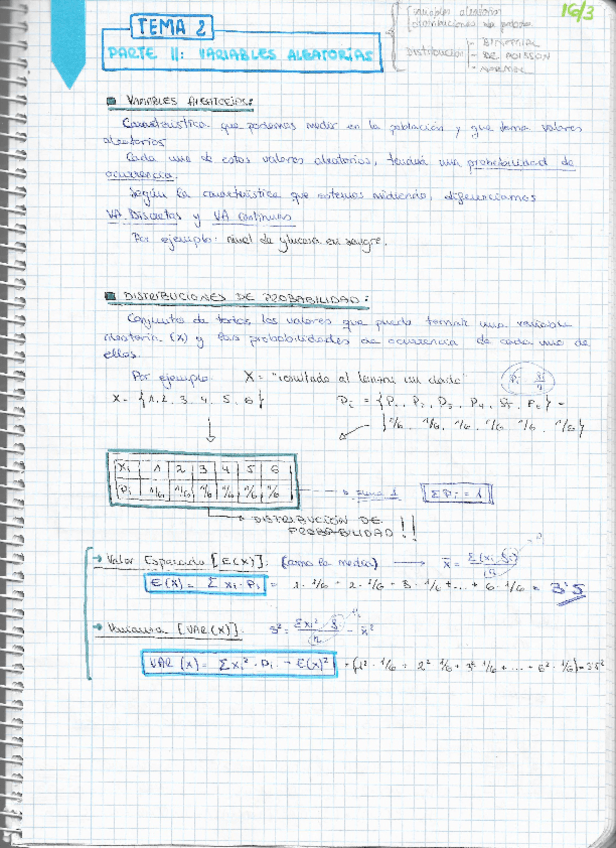 TEMA 2
PARTE II: VARIABLES ALEATORIAS
Variables aleatorias
distribuciones de probab.
Distribución - BINOMIAL
- DE POISSON
- NORMAL
16/3
VARIABLES ALEATORIAS:
Característica que podemos medir en la población y que toma valores
aleatorios
Cada uno de estos valores aleatorios, tendrá una probabilidad de
ocurrencia.
Según la característica que estemos midiendo, diferenciamos
VA. Discretas y VA continuas
Por ejemplo: nivel de glucosa en sangre.
DISTRIBUCIONES DE PROBABILIDAD:
Conjunto de todos los valores que puede tomar una variable
aleatoria (X) y las probabilidades de ocurrencia de cada uno de
ellos.
Por ejemplo: X = "resultado al lanzar un dado"
X = {1, 2, 3, 4, 5, 6}
Pi = {P1, P2, P3, P4, P5, P6} =
{1/6, 1/6, 1/6, 1/6, 1/6, 1/6}
Xi 1 2 3 4 5 6
Pi 1/6 1/6 1/6 1/6 1/6 1/6
suma 1
ΣPi = 1
DISTRIBUCIÓN DE
PROBABILIDAD!!
Valor Esperado [E(X)]: (como la media) → x̄ = Σ(xi · fi)/n
E(X) = Σ xi · Pi = 1 · 1/6 + 2 · 1/6 + 3 · 1/6 + ... + 6 · 1/6 = 3'5
Varianza [VAR(X)]: S² = Σxi² · fi/n - x̄²
VAR (X) = Σ xi² · Pi - E(X)² = (1² · 1/6 + 2² · 1/6 + 3² · 1/6 + ... + 6² · 1/6) - 3'5²